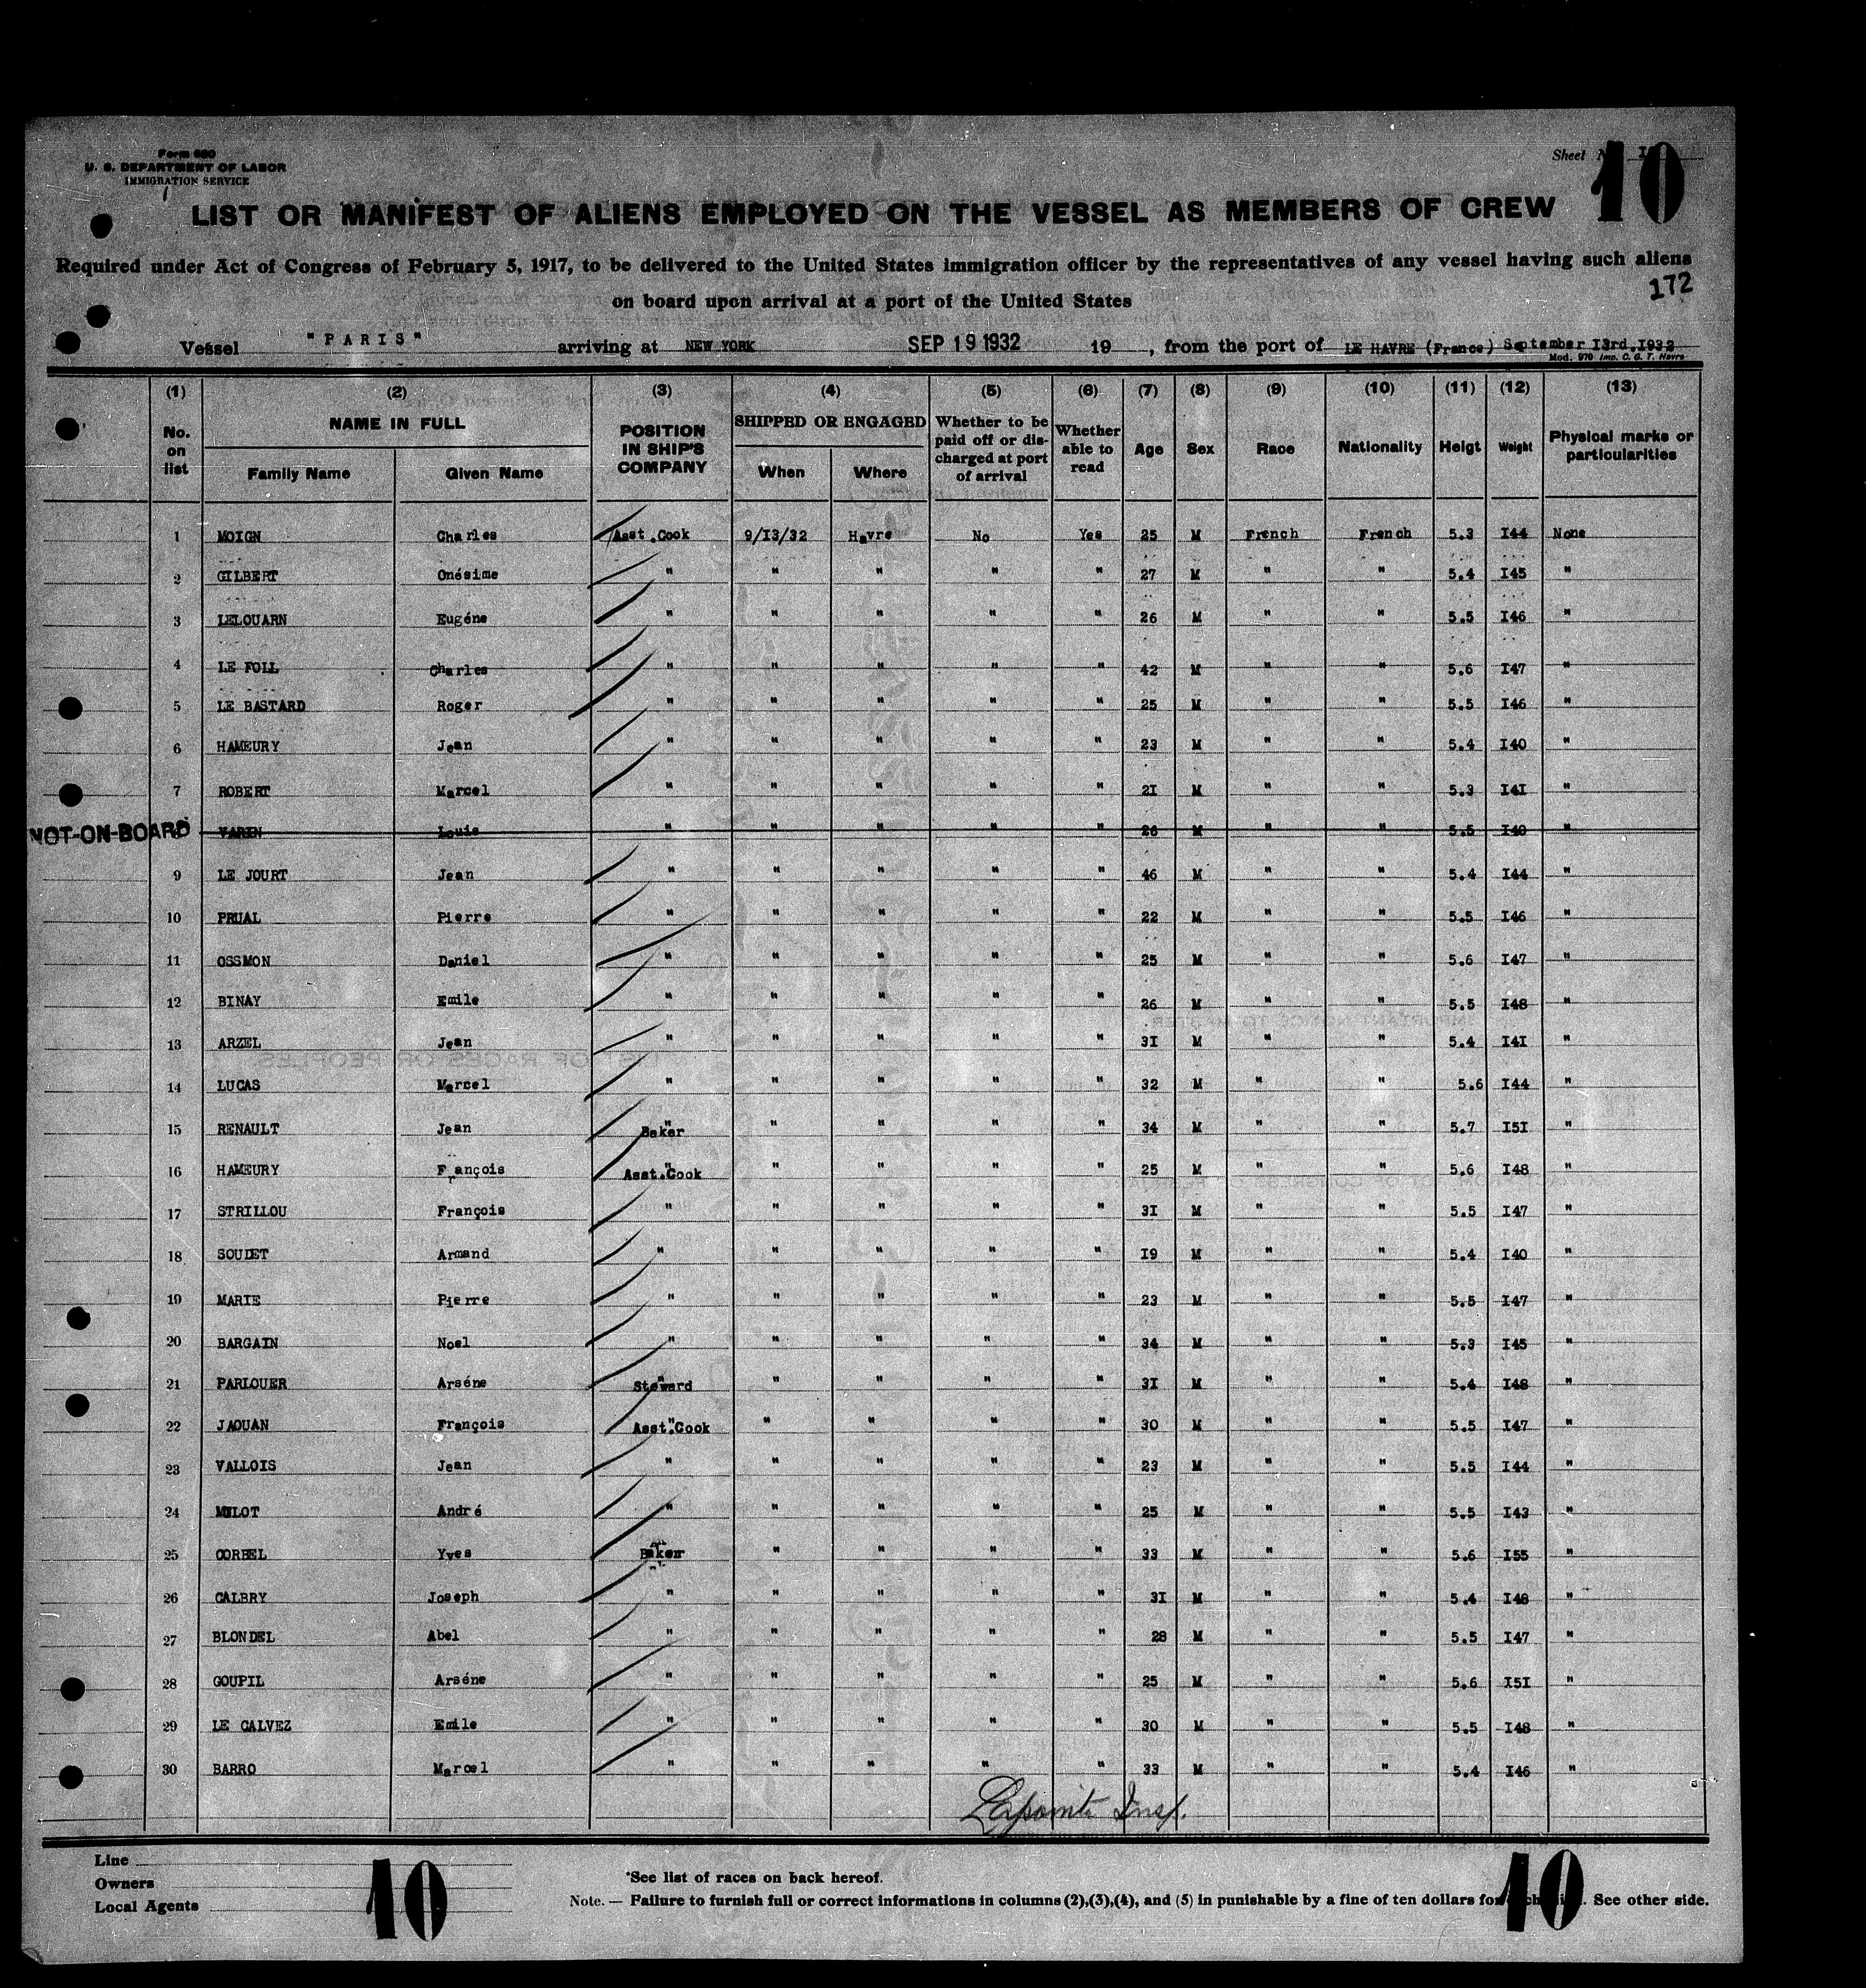 Form 680
U. S. DEPARTMENT OF LABOR
IMMIGRATION SERVICE
Sheet
10
LIST OR MANIFEST OF ALIENS EMPLOYED ON THE VESSEL AS MEMBERS OF CREW
Required under Act of Congress of February 5, 1917, to be delivered to the United States immigration officer by the representatives of any vessel having such aliens
on board upon arrival at a port of the United States
172
Vessel "PARIS" arriving at NEW YORK SEP 19 1932 19 , from the port of LE HAVRE (France) September I3rd.I932
Mod. 970 Imp. C. G. T. Havre
(1) (2) (3) (4) (5) (6) (7) (8) (9) (10) (11) (12) (13)
No. on list NAME IN FULL Family Name Given Name POSITION IN SHIP'S COMPANY SHIPPED OR ENGAGED When Where Whether to be paid off or discharged at port of arrival Whether able to read Age Sex Race Nationality Heigt Weight Physical marks or particularities
1 MOIGN Charles Asst.Cook 9/I3/32 Havre No Yes 25 M French French 5.3 I44 None
2 GILBERT Onésime " " " " " 27 M " " 5.4 I45 "
3 LELOUARN Eugéne " " " " " 26 M " " 5.5 I46 "
4 LE FOLL Charles " " " " " 42 M " " 5.6 I47 "
5 LE BASTARD Roger " " " " " 25 M " " 5.5 I46 "
6 HAMEURY Jean " " " " " 23 M " " 5.4 I40 "
7 ROBERT Marcel " " " " " 2I M " " 5.3 I4I "
NOT-ON-BOARD VAREN Louis " " " " " 26 M " " 5.5 I40 "
9 LE JOURT Jean " " " " " 46 M " " 5.4 I44 "
10 PRUAL Pierre " " " " " 22 M " " 5.5 I46 "
11 OSSMON Daniel " " " " " 25 M " " 5.6 I47 "
12 BINAY Emile " " " " " 26 M " " 5.5 I48 "
13 ARZEL Jean " " " " " 3I M " " 5.4 I4I "
14 LUCAS Marcel " " " " " 32 M " " 5.6 I44 "
15 RENAULT Jean Baker " " " " 34 M " " 5.7 I5I "
16 HAMEURY François Asst.Cook " " " " 25 M " " 5.6 I48 "
17 STRILLOU François " " " " " 3I M " " 5.5 I47 "
18 SOUDET Armand " " " " " I9 M " " 5.4 I40 "
19 MARIE Pierre " " " " " 23 M " " 5.5 I47 "
20 BARGAIN Noel " " " " " 34 M " " 5.3 I45 "
21 PARLOUER Arséne Steward " " " " 3I M " " 5.4 I48 "
22 JAOUAN François Asst.Cook " " " " 30 M " " 5.5 I47 "
23 VALLOIS Jean " " " " " 23 M " " 5.5 I44 "
24 MILOT André " " " " " 25 M " " 5.5 I43 "
25 CORBEL Yves Baker " " " " 33 M " " 5.6 I55 "
26 CALBRY Joseph " " " " " 3I M " " 5.4 I48 "
27 BLONDEL Abel " " " " " 28 M " " 5.5 I47 "
28 GOUPIL Arséne " " " " " 25 M " " 5.6 I5I "
29 LE CALVEZ Emile " " " " " 30 M " " 5.5 I48 "
30 BARRO Marcel " " " " " 33 M " " 5.4 I46 "
Lapointe Insp.
Line
Owners
Local Agents
10
*See list of races on back hereof.
Note. — Failure to furnish full or correct informations in columns (2),(3),(4), and (5) in punishable by a fine of ten dollars for See other side.
10